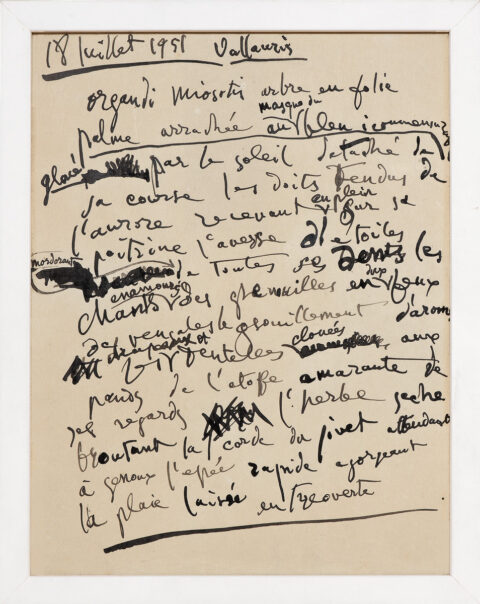 18 Juillet 1951 Vallauris
organdi miosotis arbre en folie
masque du
palme arrachée au bleu
glacé par le soleil détaché de
sa course les doits tendus de
l'aurore recevant en plein sur sa
poitrine l'averse d'étoiles
mordorant de toutes ses dents les
enamourés
chants des grenouilles en dix feux
de bengales le grouillement d'arom
et dentelles clouées aux
pends de l'étofe amarante de
ses regards l'herbe seche
broutant la corde du pivet attendant
à genoux l'épée rapide egorgeant
la plaie laissée entreouverte